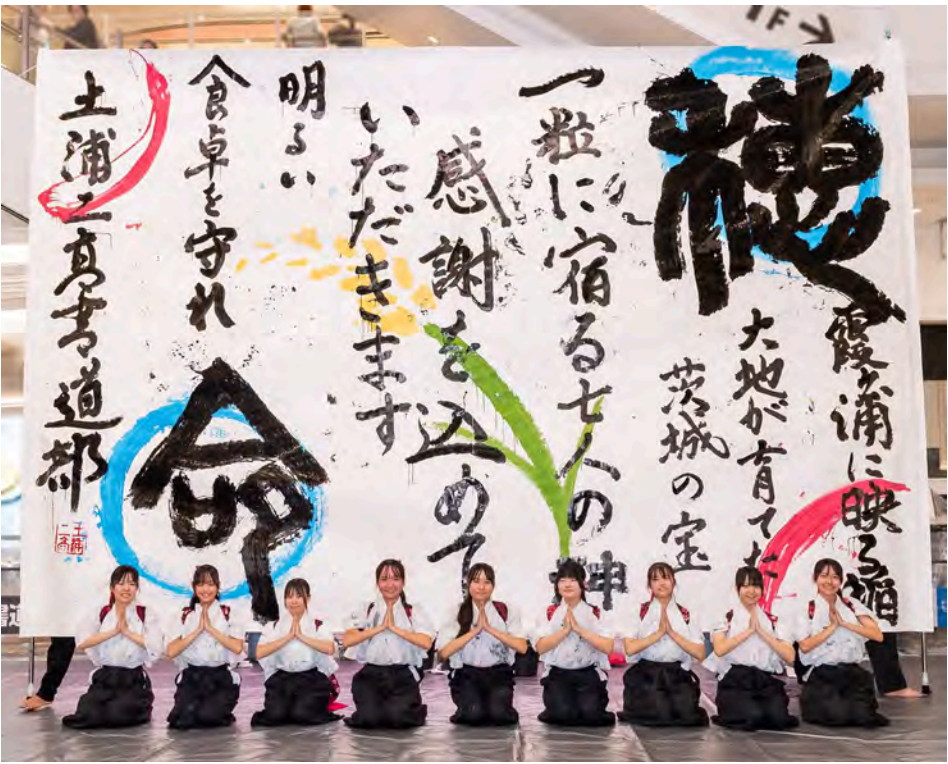 穂
霞ヶ浦に映る稲
大地が育てた
茨城の宝
一粒に宿る七人の神
感謝を込めて
いただきます
明るい
食卓を守れ
命
土浦二高書道部
土浦二高
1F →